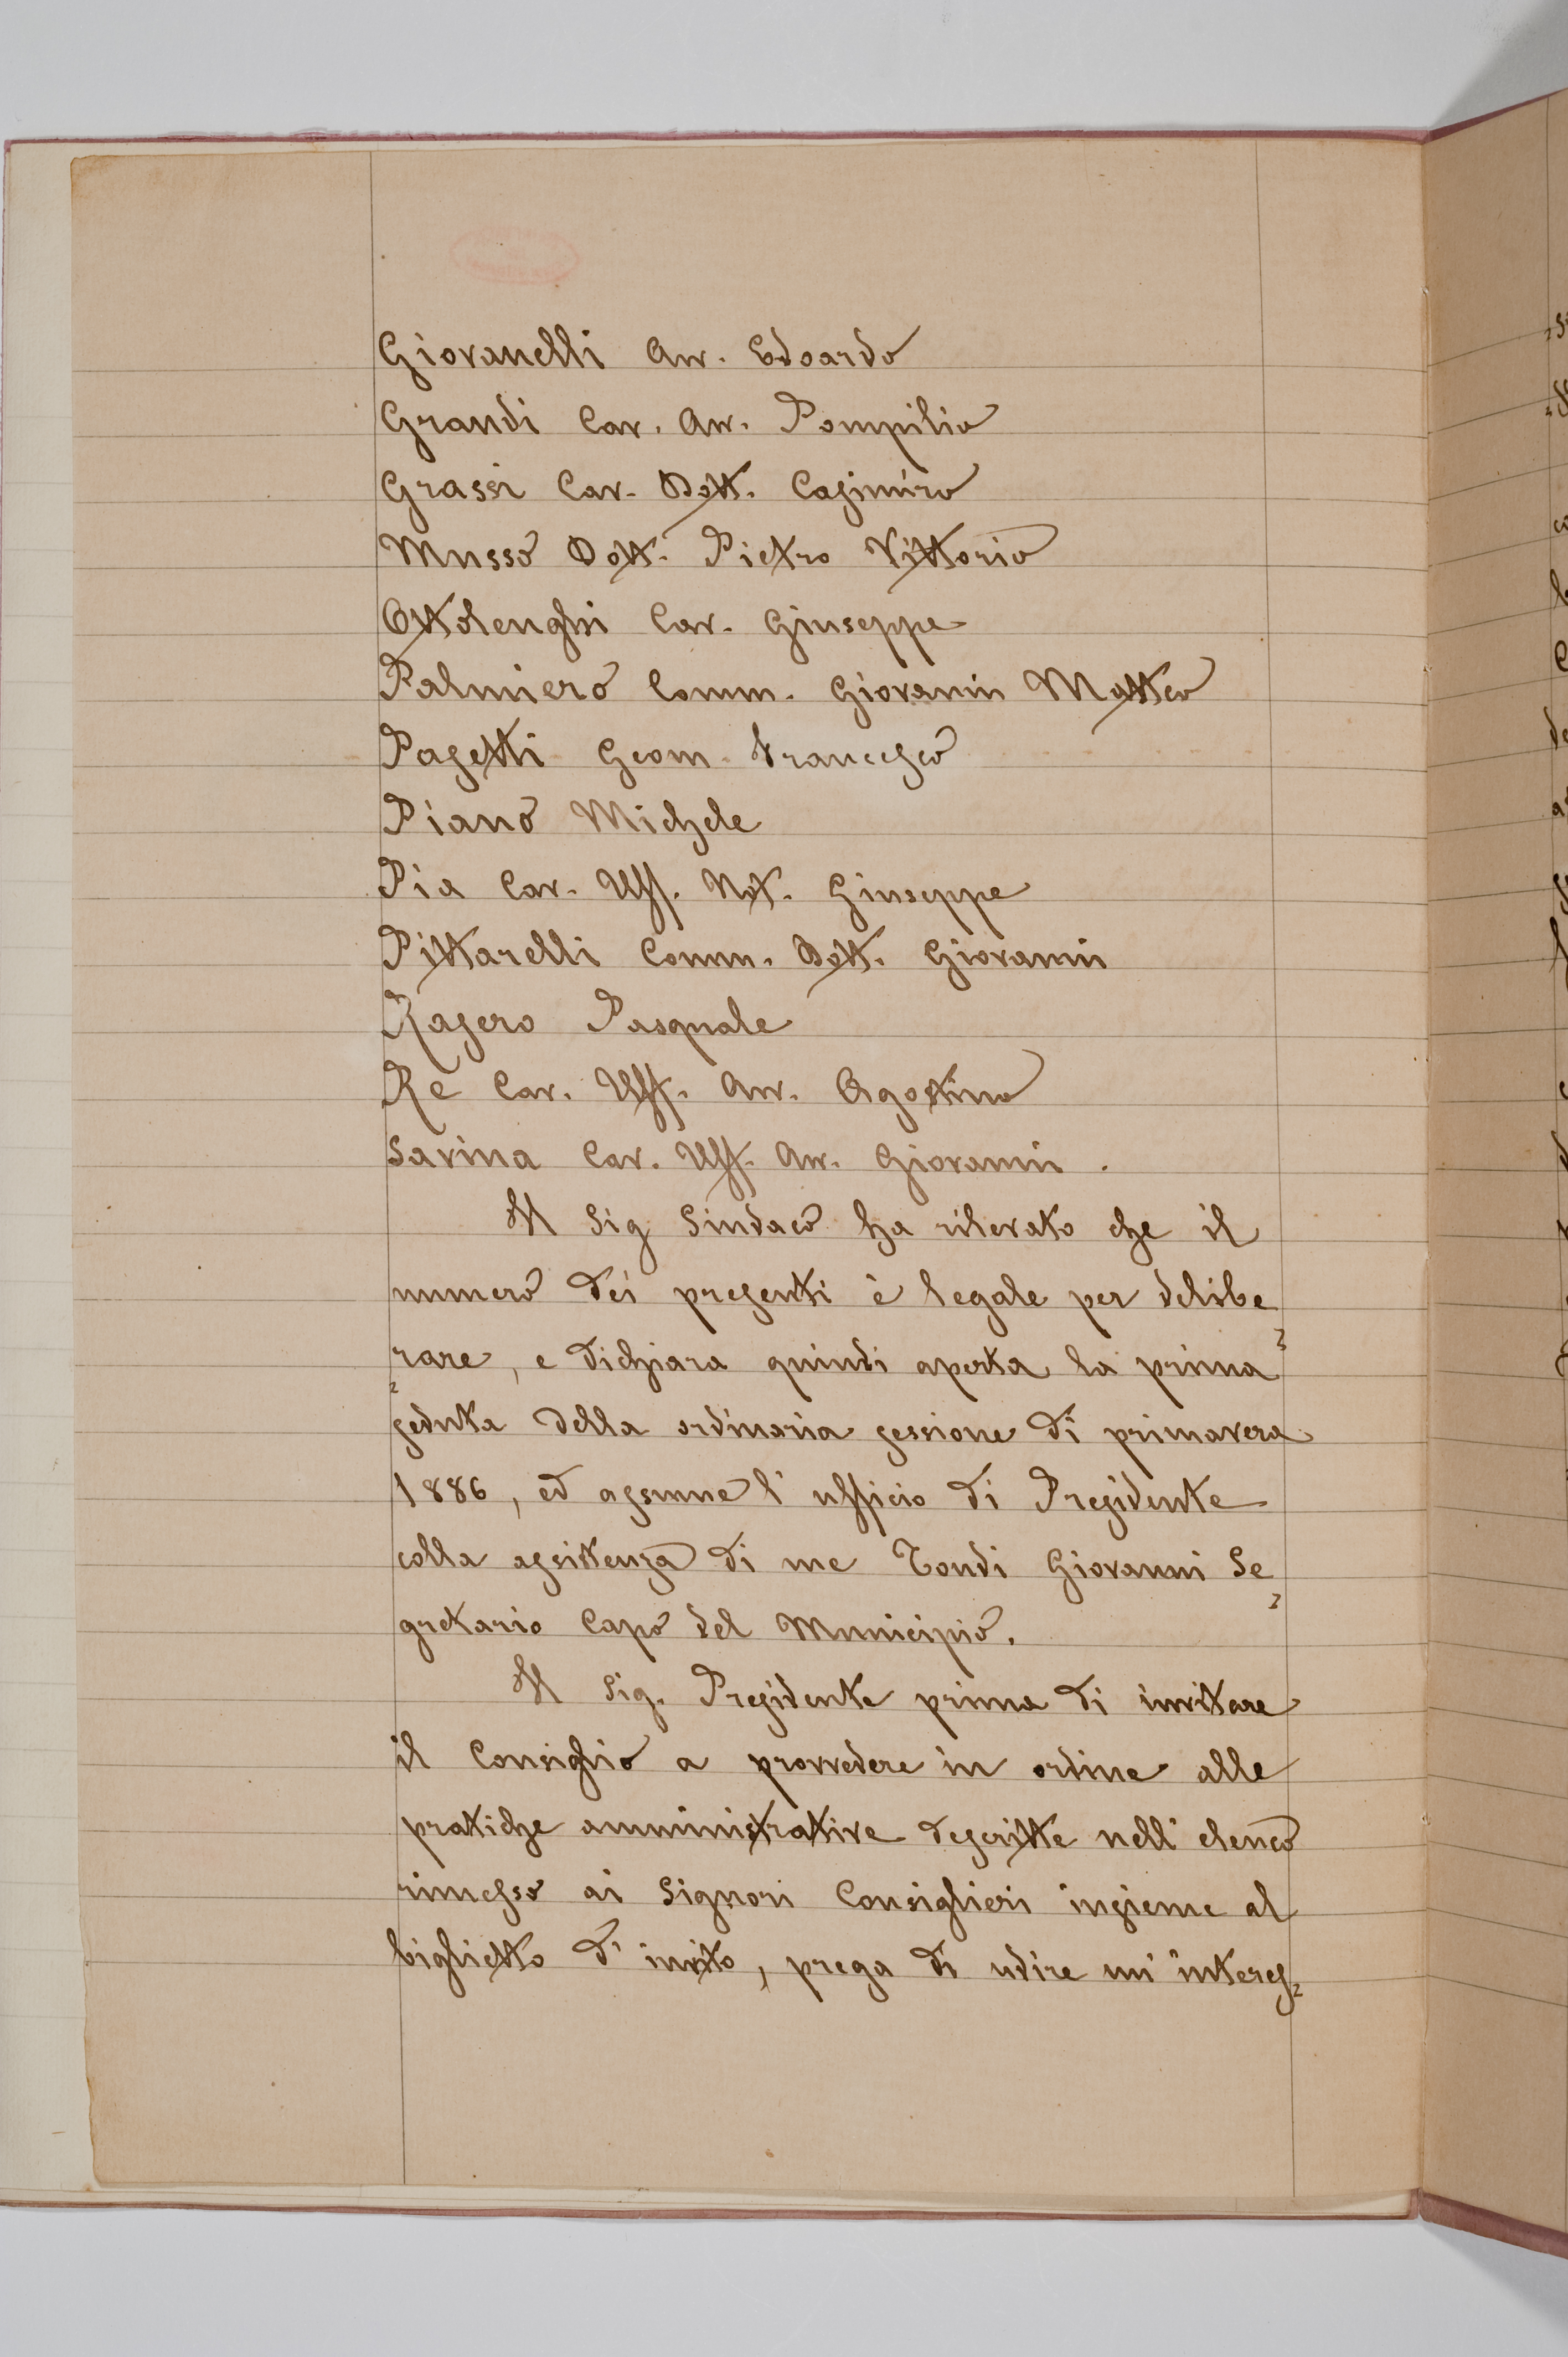 Giovanelli Avv. Edoardo
Grandi Cav. Avv. Pompilio
Grassi Cav. Dott. Casimiro
Musso Dott. Pietro Vittorio
Ottolenghi Cav. Giuseppe
Palmiero Comm. Giovanni Matteo
Pasetti Geom. Francesco
Piano Michele
Pia Cav. Uff. Not. Giuseppe
Pittarelli Comm. Dott. Giovanni
Rasero Pasquale
Re Cav. Uff. Avv. Agostino
Savina Cav. Uff. Avv. Giovanni.
Il Sig Sindaco ha rilevato che il
numero dei presenti è legale per delibe=
=rare, e dichiara quindi aperta la prima
seduta della ordinaria sessione di primavera
1886, ed assume l'ufficio di Presidente
colla assistenza di me Tondi Giovanni Se=
gretario Capo del Municipio.
Il Sig. Presidente prima di invitare
il Consiglio a provvedere in ordine alle
pratiche amministrative descritte nell'elenco
rimesso ai Signori Consiglieri insieme al
biglietto d'invito, prega di udire un'interes=